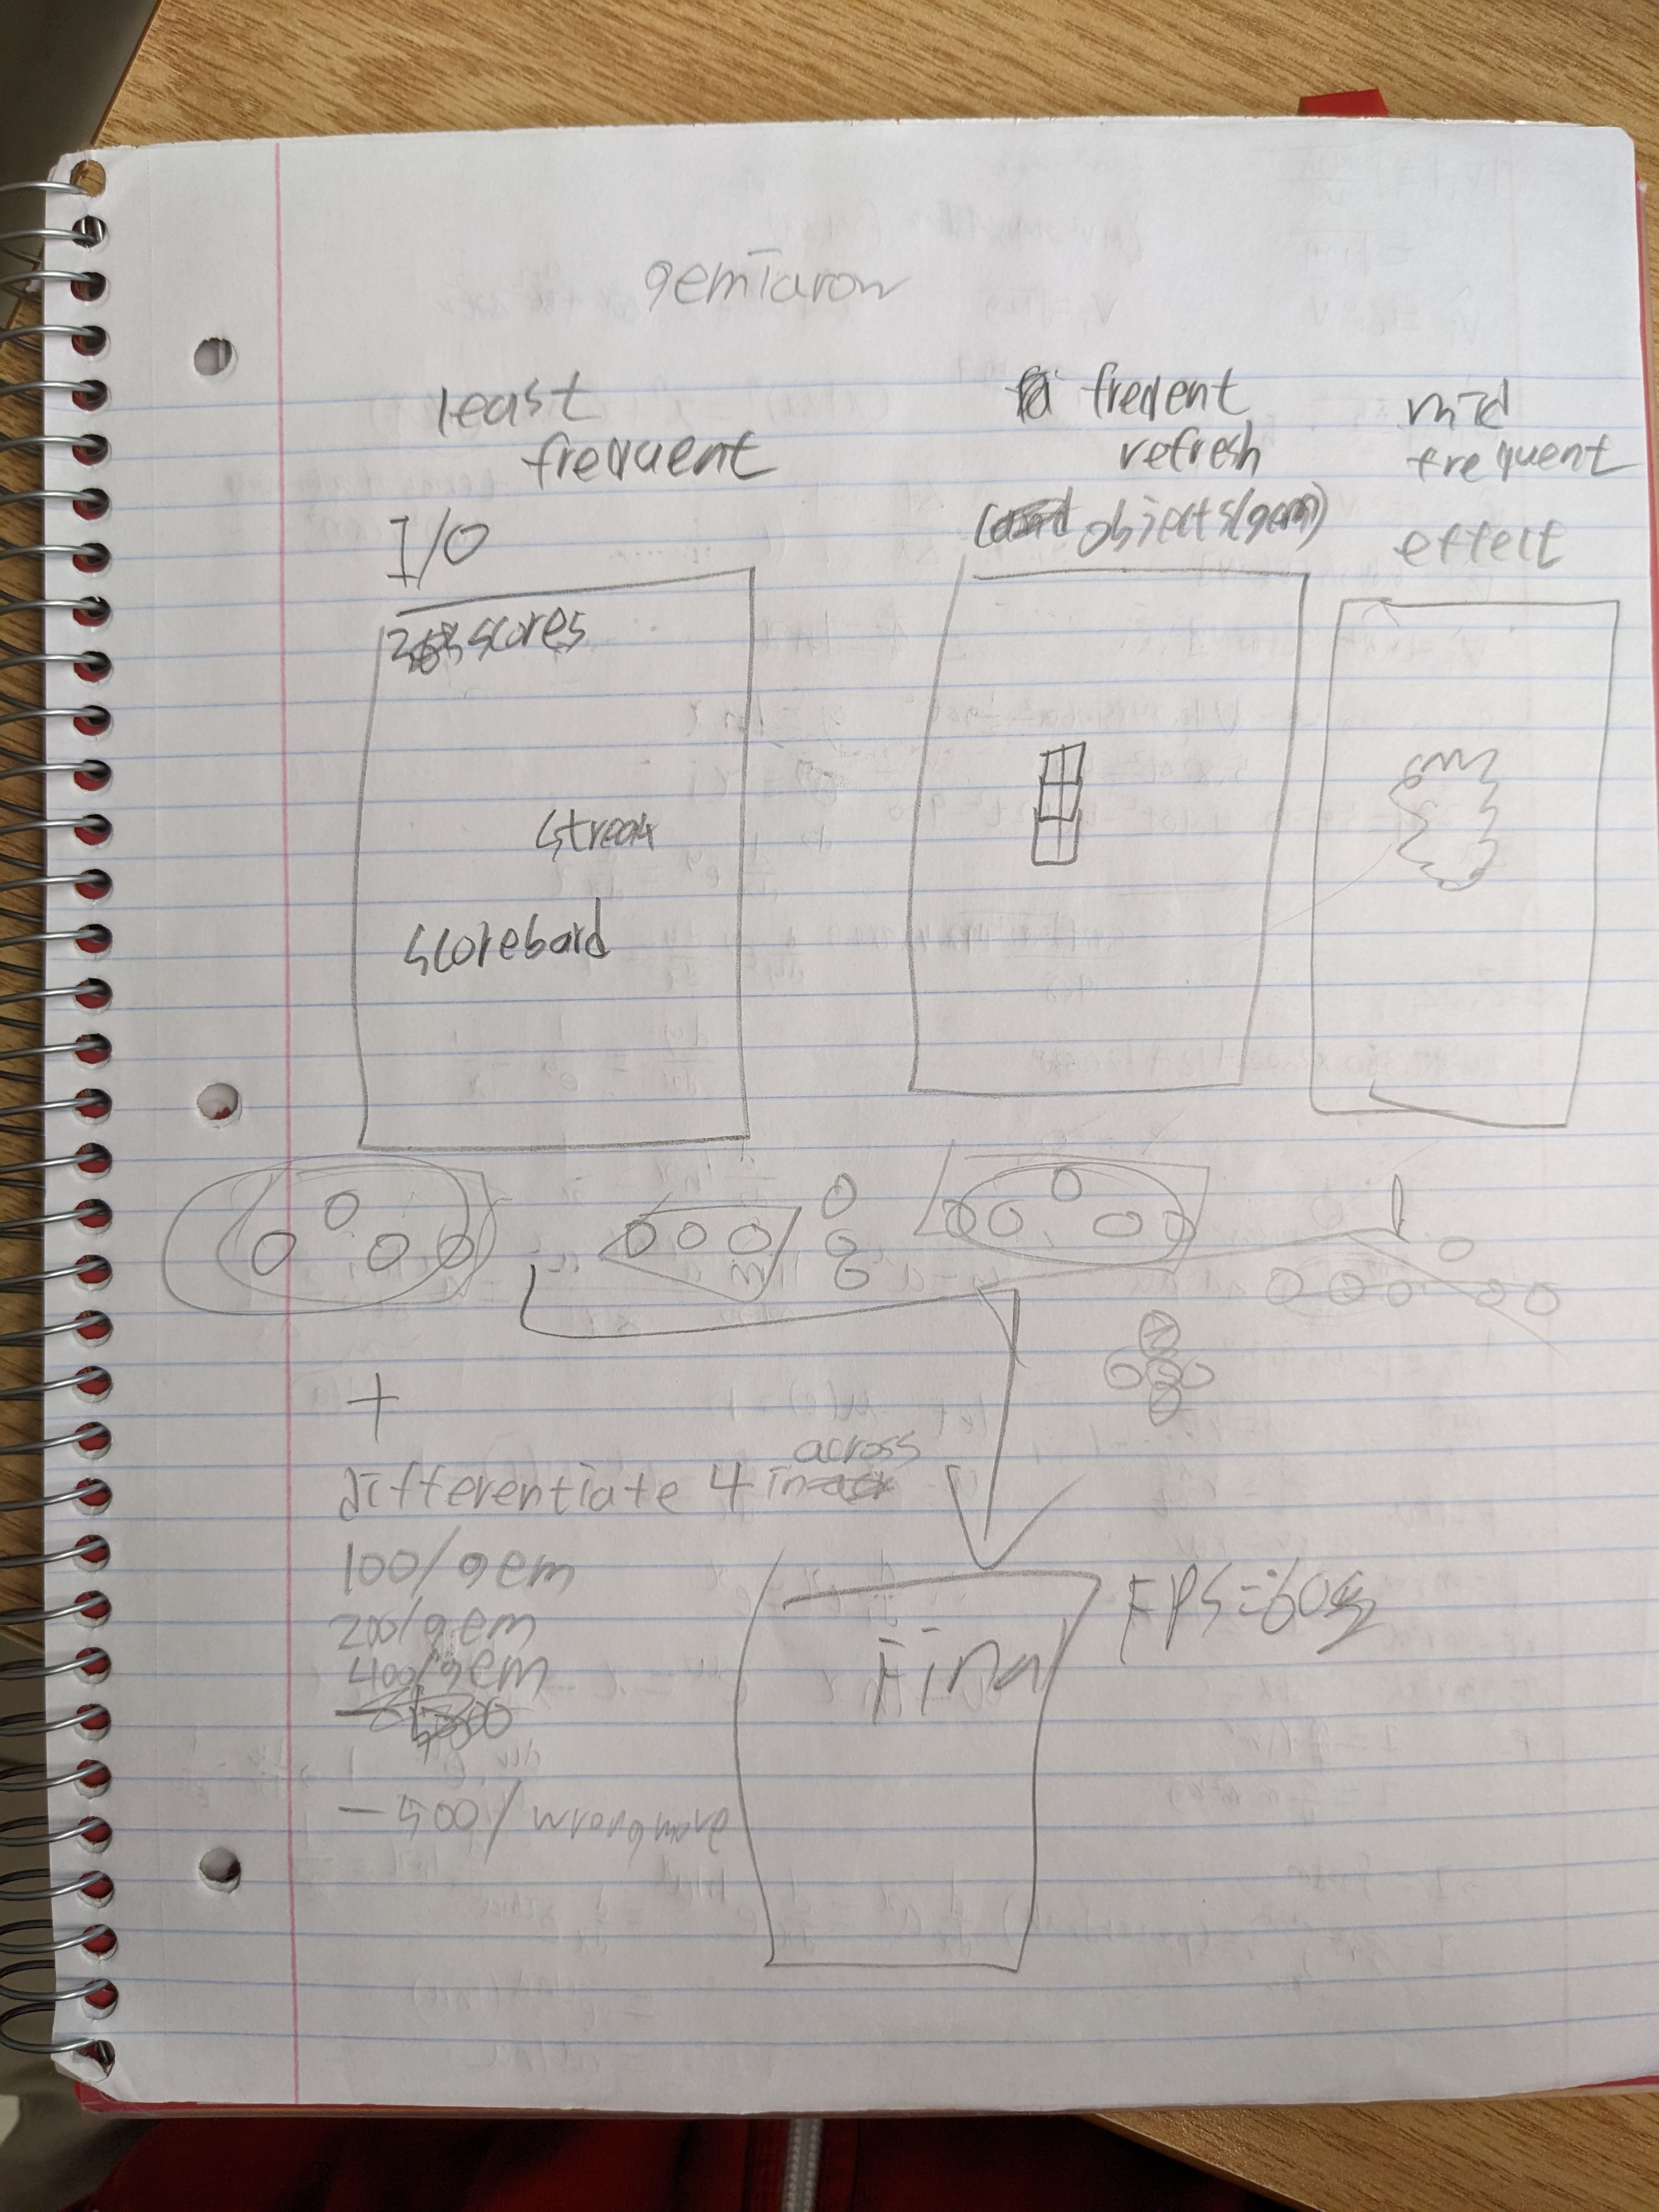 gemTaron
least
frequent
I/O
scores
streak
scorebord
freqent
refresh
objects(gem)
mid
frequent
effect
+
differentiate 4 in across
100/gem
200/gem
400/gem
-500/wrong move
Final
FPS = 60